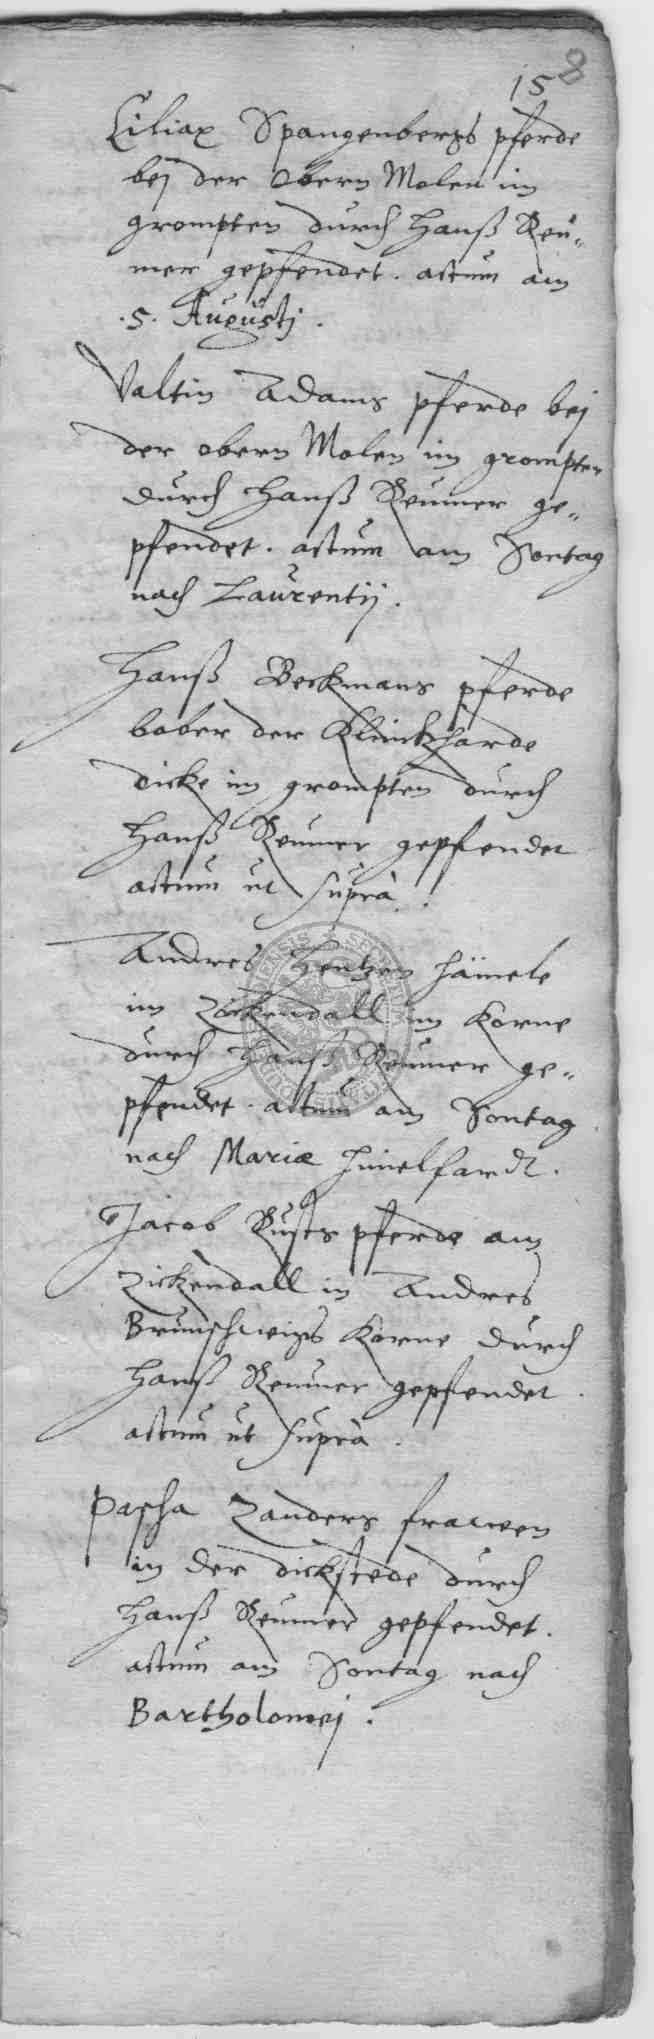 158
Ciliax Spangenbergs pferde
bej der Obern Molen im
grompten durch Hanß Reu-
mer gepfendet. actum am
.5. Augustj.
Valtin Adams pferde bej
der obern Molen im grompten
durch Hanß Reumer ge-
pfendet. actum am Sontag
nach Laurentij.
Hanß Beckmans pferde
bober der Klinckharde
dicke im grompten durch
Hanß Reumer gepfendet
actum ut suprà.
Andres Hentzen
im Zickendall im Korne
durch Hanß Reumer ge-
pfendet. actum am Sontag
nach Mariæ Himelfardt.
Jacob Rusts pferde am
Zickendall in Andres
Brunschwigs Korne durch
Hanß Reumer gepfendet.
actum ut suprà.
Pascha Zanders frawen
in der dickstede durch
Hanß Reumer gepfendet.
actum am Sontag nach
Bartholomej.